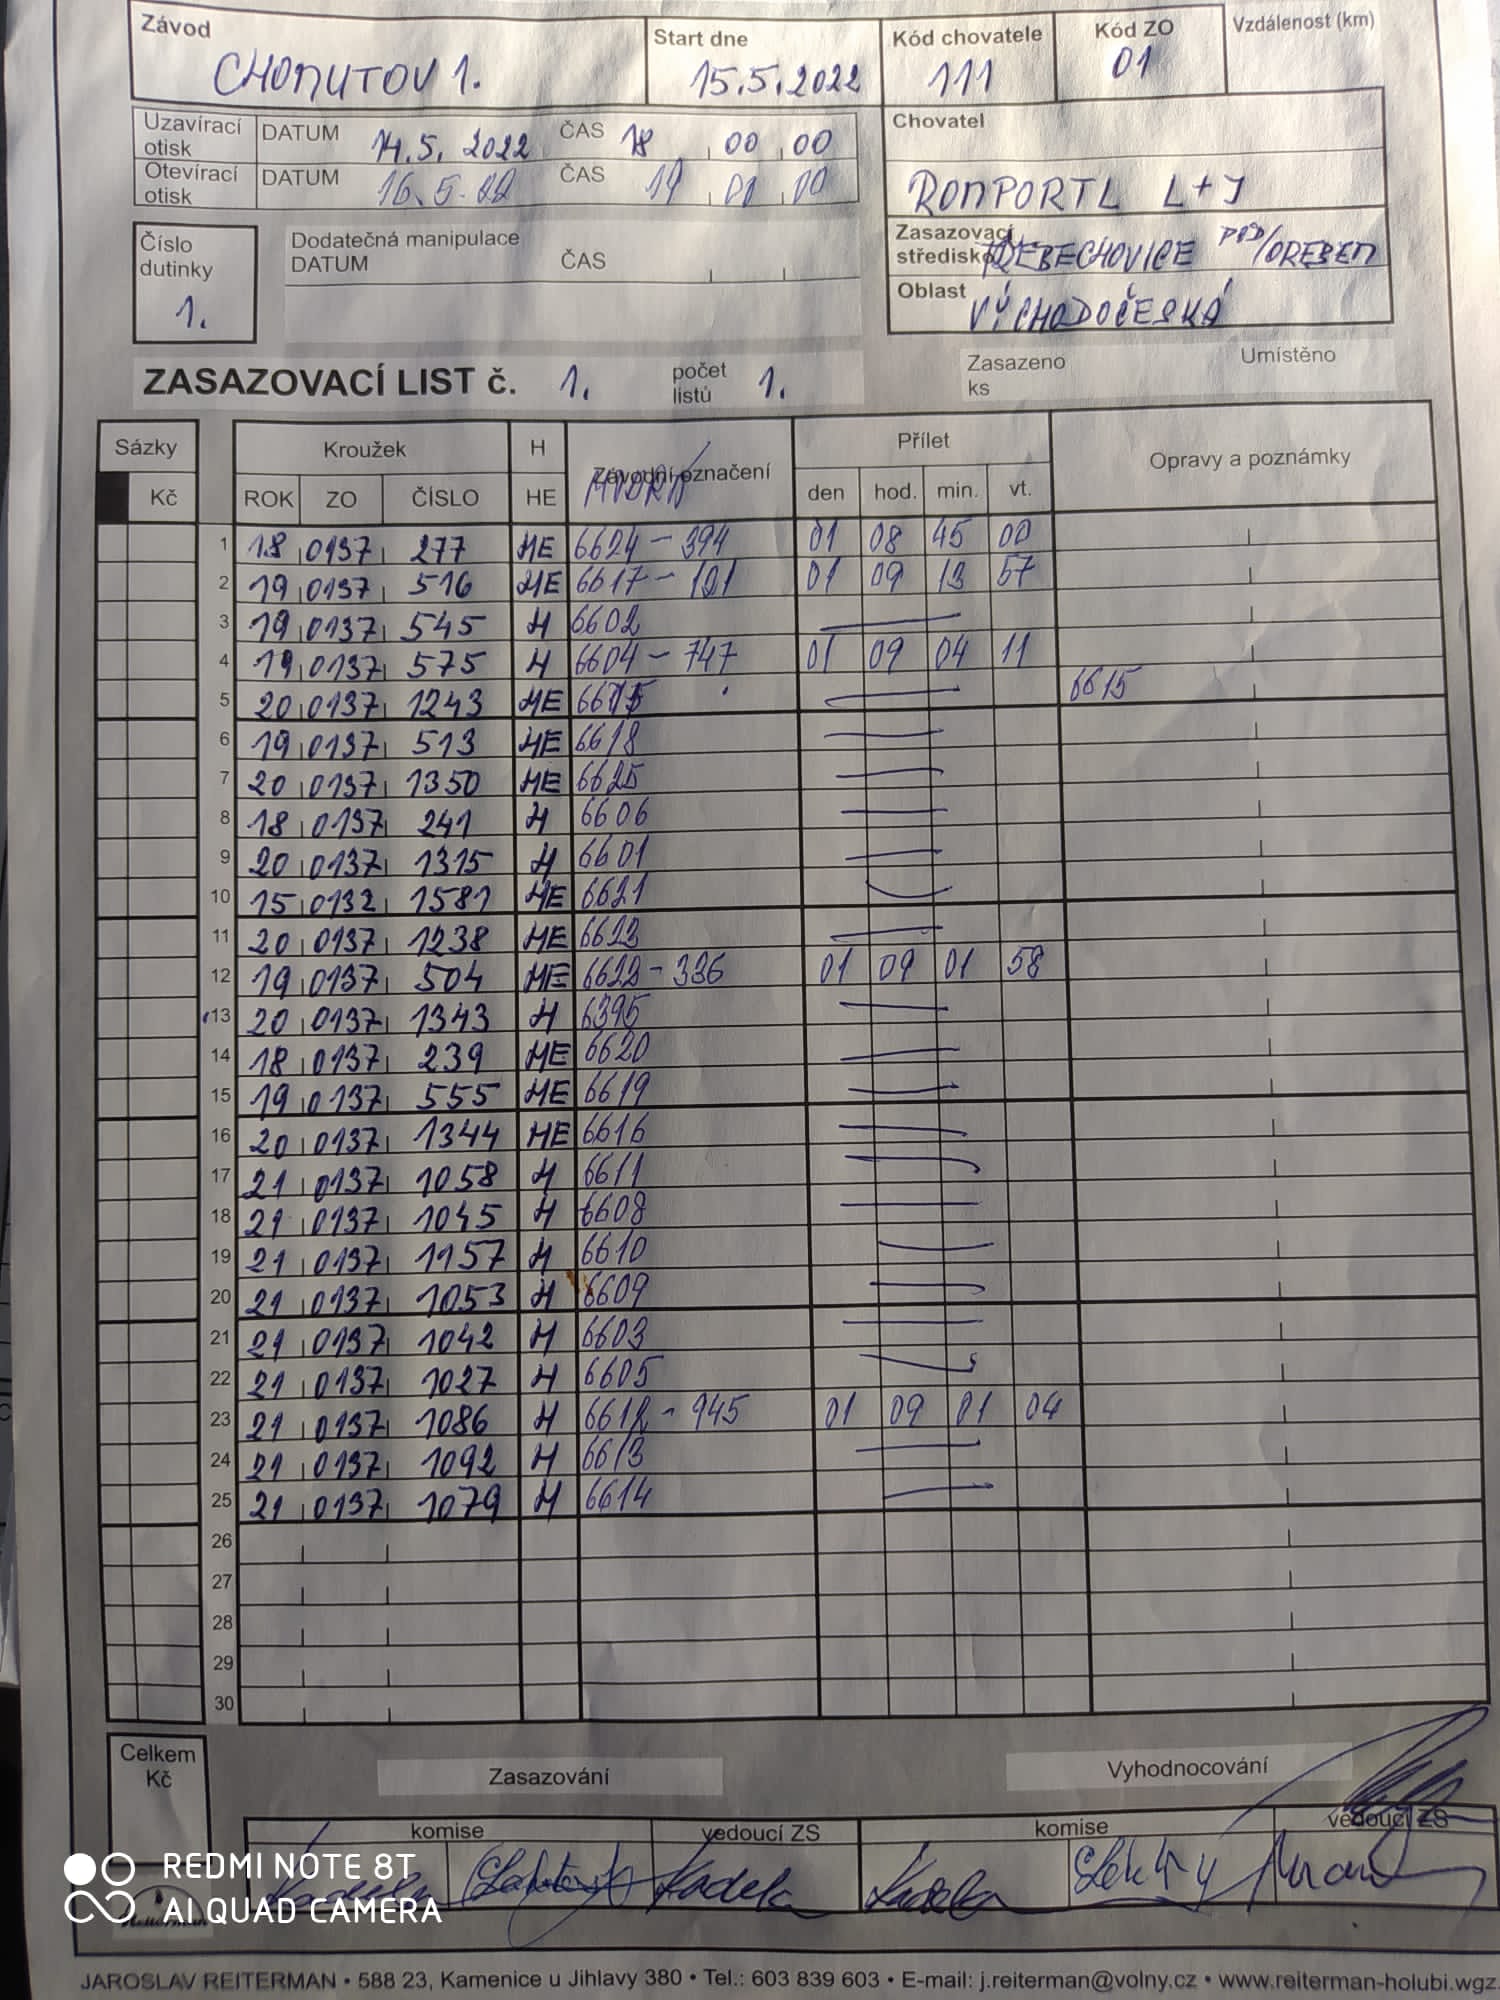 Závod Start dne Kód chovatele Kód ZO Vzdálenost (km)
CHOMUTOV 1. 15.5.2022 111 01
Uzavírací otisk DATUM 14.5. 2022 ČAS 18 00 00
Otevírací otisk DATUM 16.5.22 ČAS 19 01 00
Chovatel
ROMPORTL L+J
Číslo dutinky
1.
Dodatečná manipulace
DATUM ČAS
Zasazovací středisko TŘEBECHOVICE POD/OREBEM
Oblast VÝCHODOČESKÁ
ZASAZOVACÍ LIST č. 1. počet listů 1. Zasazeno ks Umístěno
Sázky Kroužek H Závodní označení Přílet Opravy a poznámky
Kč ROK ZO ČÍSLO HE den hod. min. vt.
1 18 0137 277 HE 6624 - 394 01 08 45 00
2 19 0137 516 HE 6617 - 101 01 09 13 57
3 19 0137 545 H 6602
4 19 0137 575 H 6604 - 747 01 09 04 11
5 20 0137 1243 HE 6615
6 19 0137 513 HE 6618
7 20 0137 1350 HE 6625
8 18 0137 241 H 6606
9 20 0137 1315 H 6601
10 15 0132 1581 HE 6621
11 20 0137 1238 HE 6623
12 19 0137 504 HE 6622 - 336 01 09 01 58
13 20 0137 1343 H 6395
14 18 0137 239 HE 6620
15 19 0137 555 HE 6619
16 20 0137 1344 HE 6616
17 21 0137 1058 H 6611
18 21 0137 1045 H 6608
19 21 0137 1157 H 6610
20 21 0137 1053 H 6609
21 21 0137 1042 H 6603
22 21 0137 1027 H 6605
23 21 0137 1086 H 6612 - 945 01 09 01 04
24 21 0137 1092 H 6613
25 21 0137 1079 H 6614
26
27
28
29
30
Celkem Kč Zasazování Vyhodnocování
komise vedoucí ZS komise vedoucí ZS
Kadela Kadela
REDMI NOTE 8T
AI QUAD CAMERA
JAROSLAV REITERMAN • 588 23, Kamenice u Jihlavy 380 • Tel.: 603 839 603 • E-mail: j.reiterman@volny.cz • www.reiterman-holubi.wgz.